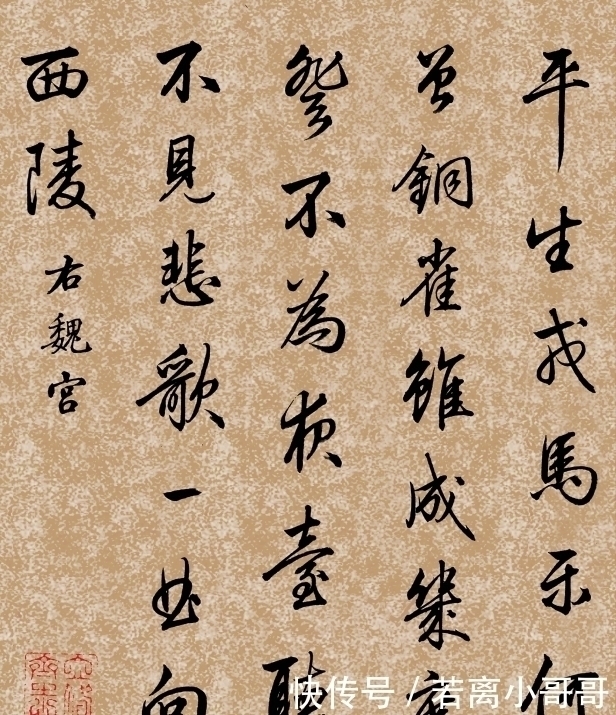 平生戎馬亦何
曾銅雀雖成幾宴
登不為夜臺聽
不見悲歌一曲向
西陵
右魏宮
快传号 / 若离小哥哥